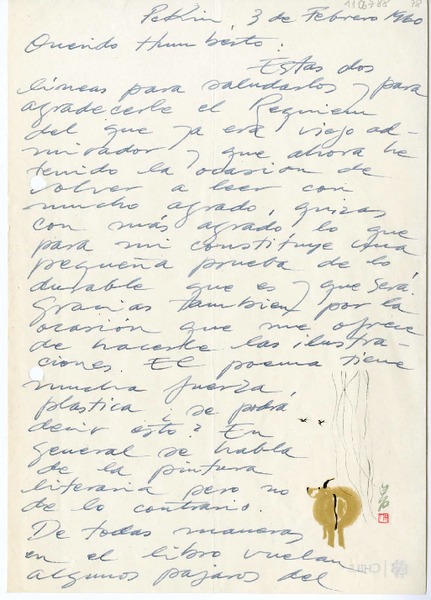 Pekin, 3 de Febrero 1960
Querido Humberto:
Estas dos
líneas para saludarlos y para
agradecerle el Requiem
del que ya era viejo ad-
mirador y que ahora he
tenido la ocasión de
volver a leer con
mucho agrado, quizás
con más agrado, lo que
para mi constituye una
pequeña prueba de lo
durable que es y que será.
Gracias tambien por la
ocasión que me ofrece
de hacerle las ilustra-
ciones. El poema tiene
mucha fuerza
plastica ¿se podrá
decir esto? En
general se habla
de la pintura
literaria pero no
de lo contrario.
De todas maneras
en el libro vuelan
algunos pajaros del